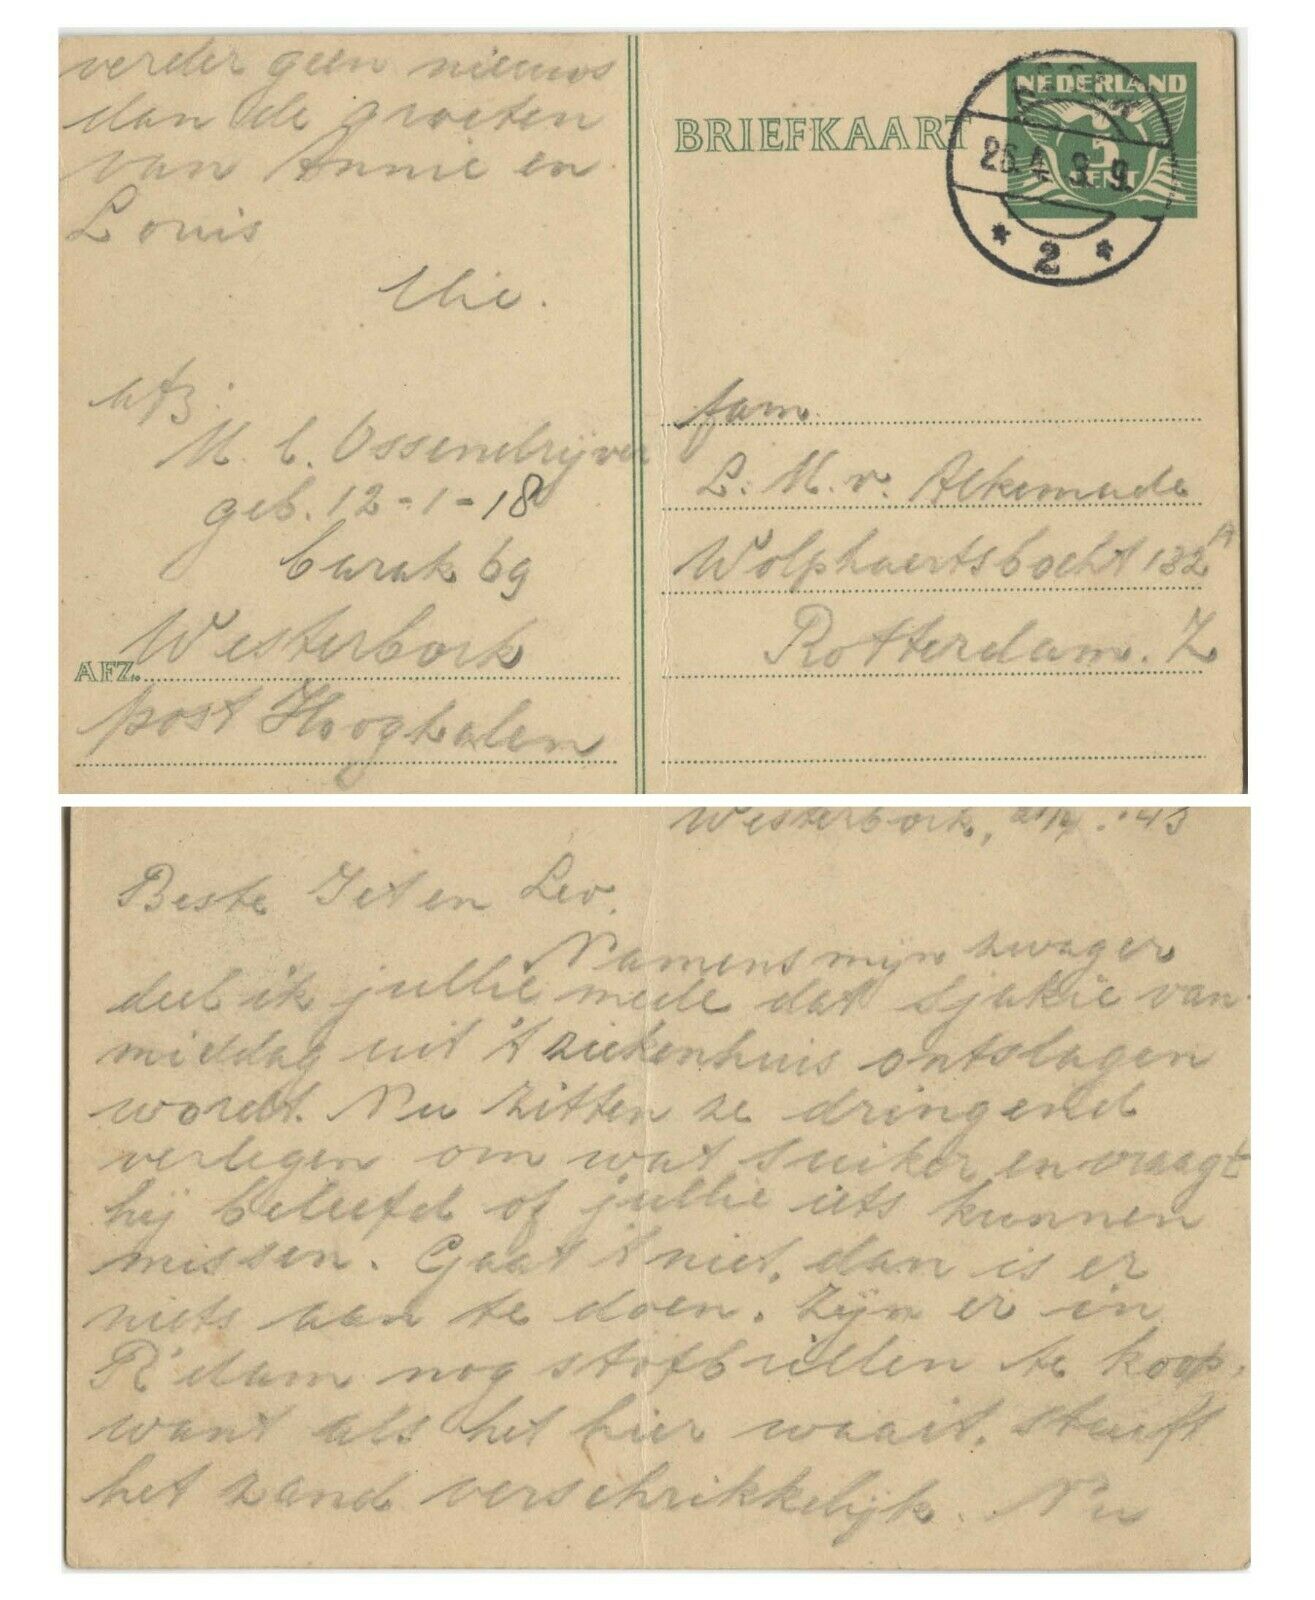 verder geen nieuws
dan de groeten
van Annie en
Louis
afz.
M. C. Ossendrijver
geb. 12-1-18
barak 69
Westerbork
AFZ.
post Hooghalen
BRIEFKAART
NEDERLAND
5
CENT
26.4 3.9.
* 2 *
fam.
L. M. v. Alkemade
Wolphaertsbocht 132A
Rotterdam. Z
Westerbork, '43
Beste Jet en Leo.
Namens mijn zwager
deel ik jullie mede dat Sjakie van-
middag uit 't ziekenhuis ontslagen
wordt. Nu zitten ze dringend
verlegen om wat suiker en vraagt
hij beleefd of jullie iets kunnen
missen. Gaat 't niet, dan is er
niets aan te doen. Zijn er in
R'dam nog stofbrillen te koop,
want als het hier waait, stuift
het zand verschrikkelijk. Nu